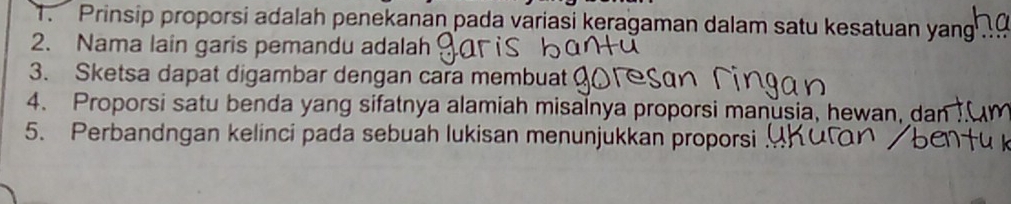 1. Prinsip proporsi adalah penekanan pada variasi keragaman dalam satu kesatuan yang ha
2. Nama lain garis pemandu adalah garis bantu
3. Sketsa dapat digambar dengan cara membuat goresan ringan
4. Proporsi satu benda yang sifatnya alamiah misalnya proporsi manusia, hewan, dan tum
5. Perbandngan kelinci pada sebuah lukisan menunjukkan proporsi ukuran / bentuk